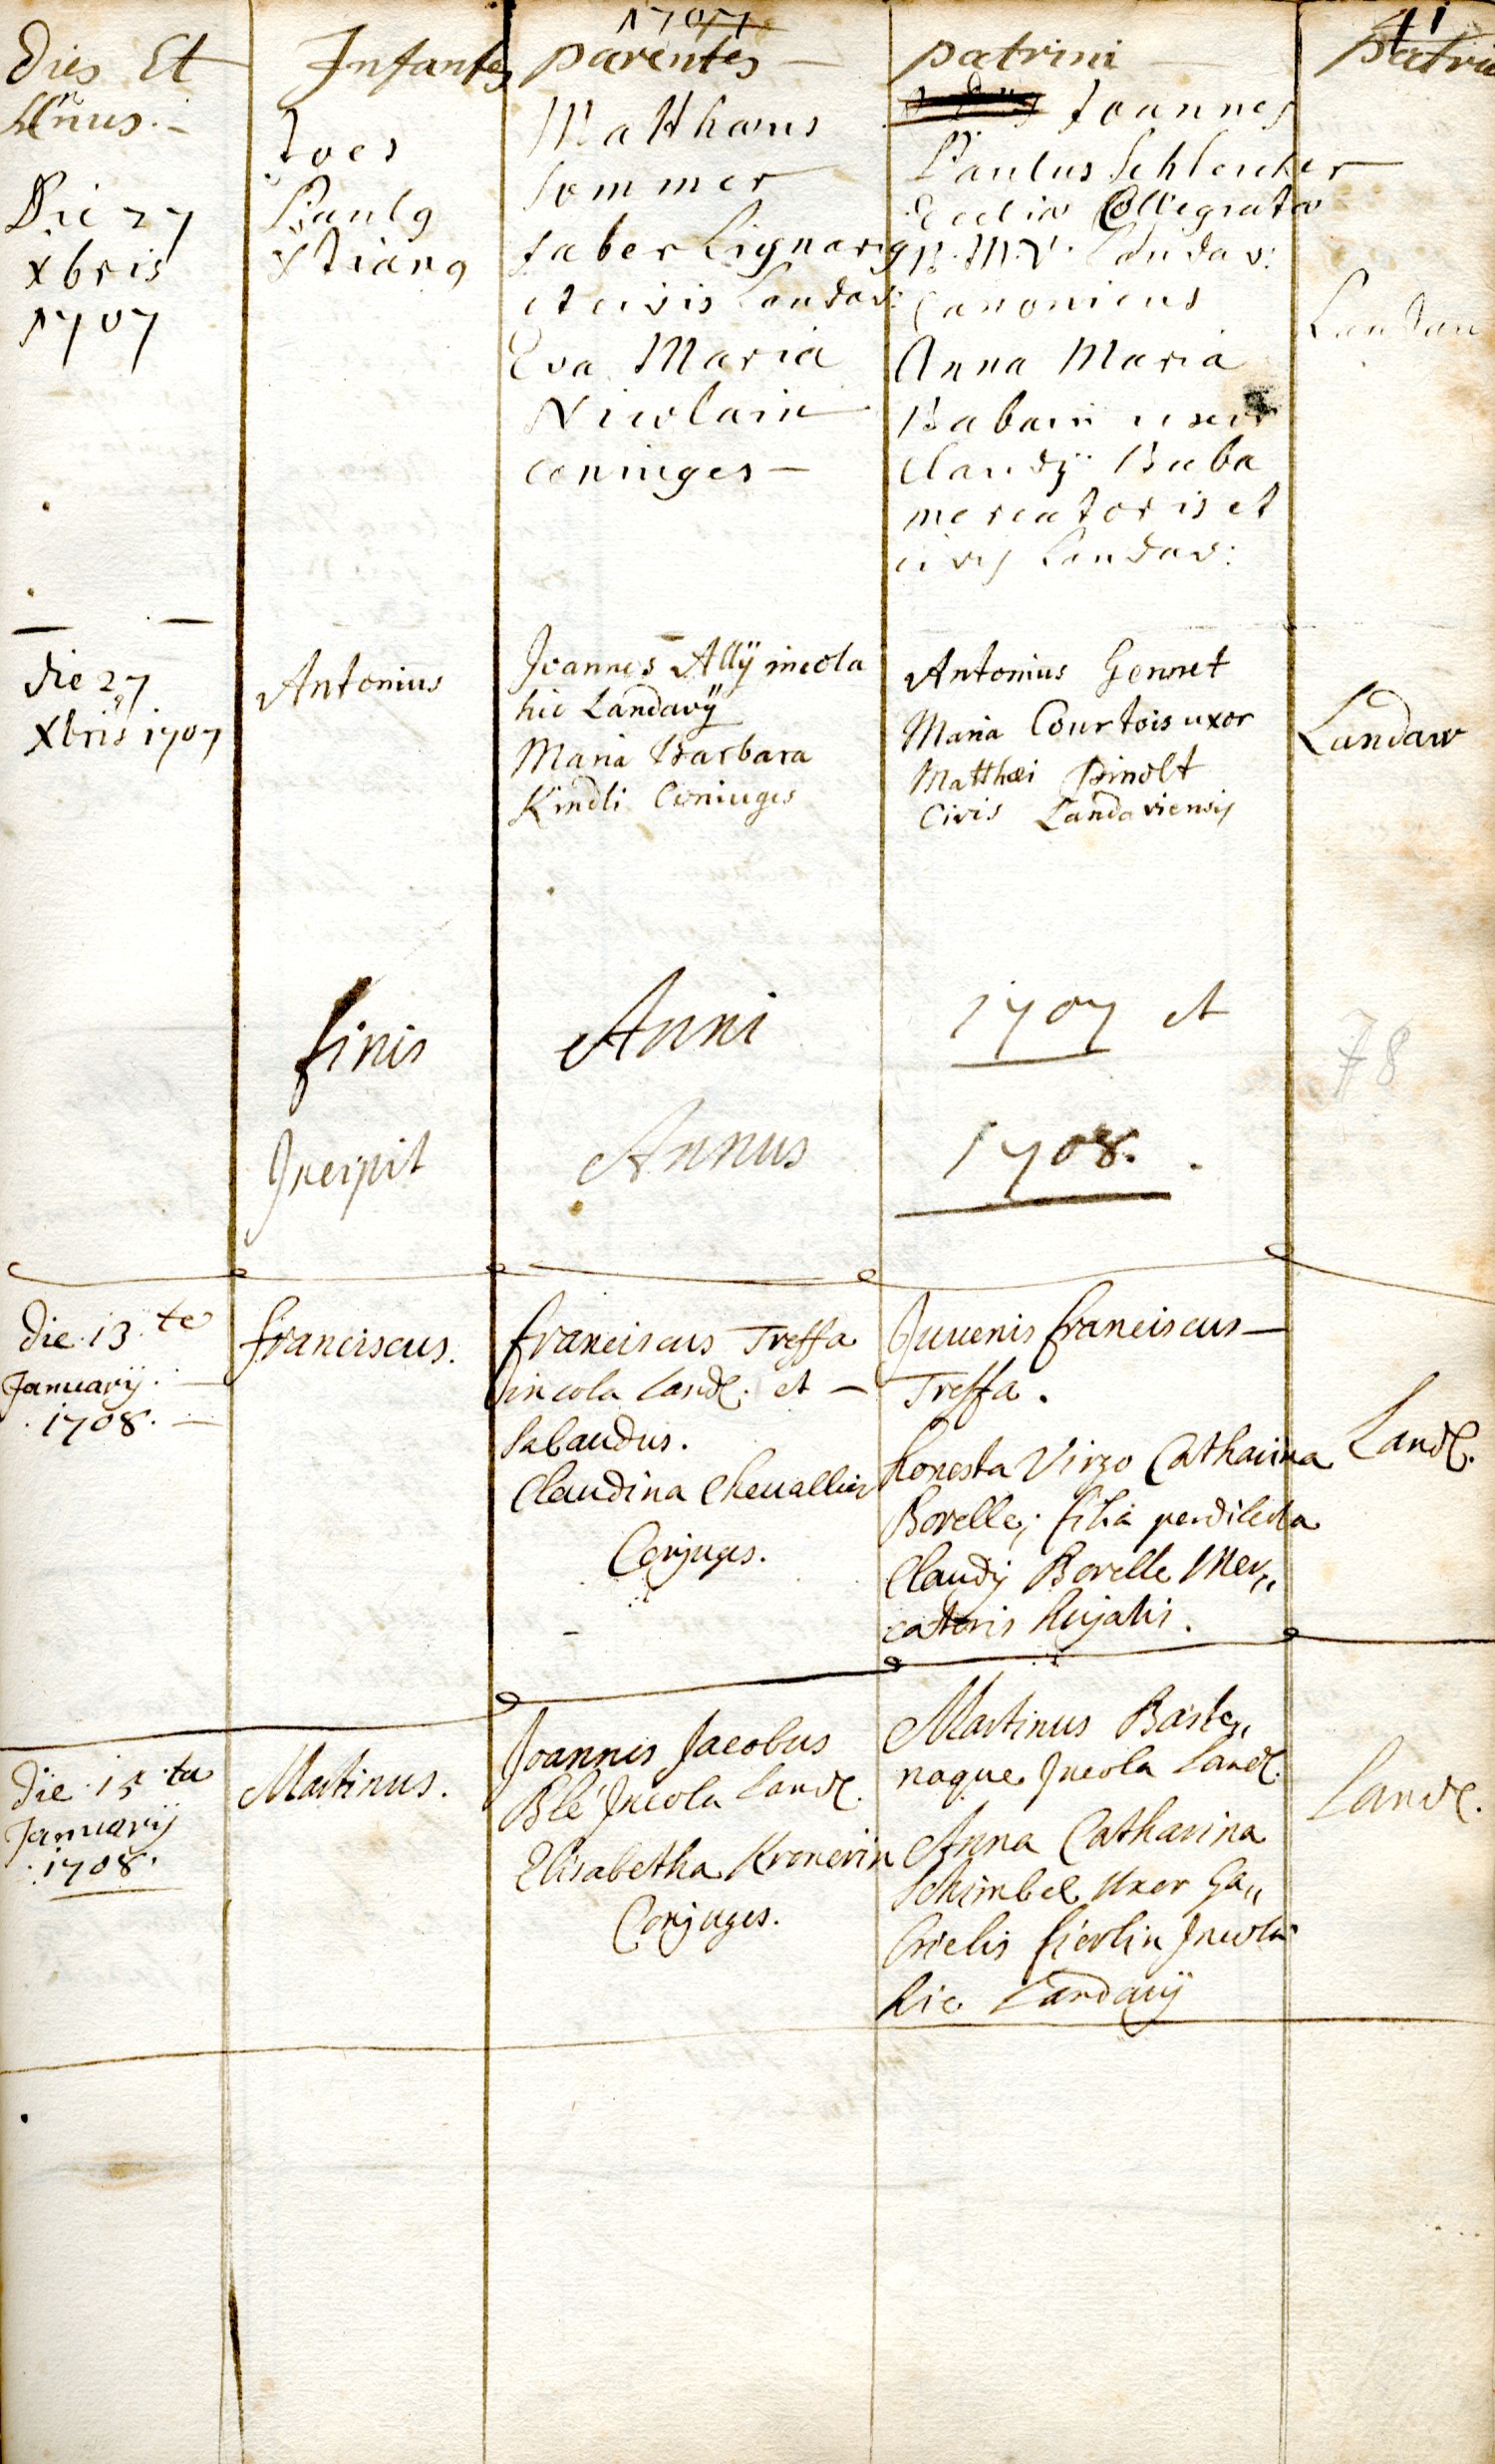 1707
41
Dies Et
Annus.
Infantes
parentes
patrini
patria
Die 27
Xbris
1707
Joes
Paul9
Xtian9
Matthæus
Sommer
faber Lignari9
et civis Landav:
Eva Maria
Nicolain
coniuges
Joannes
Paulus Schlencker
Eccliæ Collegiatæ
B. M. V. Landav:
Canonicus
Anna Maria
Babain uxor
Claudÿ Baba
mercatoris et
civis Landav:
Landau
die 27
Xbris 1707
Antonius
Joannes Allÿ incola
hic Landavÿ
Maria Barbara
Kindli Coniuges
Antonius Gennet
Maria Courtois uxor
Matthæi Binolt
Civis Landaviensis
Landaw
finis Anni 1707 et
78
Incipit Annus 1708.
die 13te
Januarÿ.
1708.
franciscus.
franciscus Treffa
incola Land. et
Sabaudus.
Claudina Chevallier
Conjuges.
Juvenis franciscus
Treffa.
honesta Virgo Catharina
Borelle, filia perdilecta
Claudÿ Borelle Mer„
catoris hujatis.
Land.
die 15ta
Januarÿ
1708.
Martinus.
Joannis Jacobus
Blé Incola Land.
Elisabetha Kronerin
Conjuges.
Martinus Baste„
naque Incola Land.
Anna Catharina
Schimbel Uxor Ga„
brielis fierlin Incola
hic Landavÿ
Land.